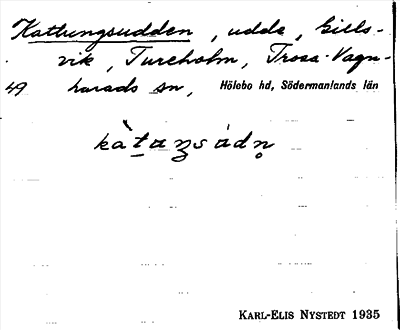 Kattungsudden, udde, Gills-
vik, Tureholm, Trosa-Vagn-
49 härads sn, Hölebo hd, Södermanlands län
KARL-ELIS NYSTEDT 1935